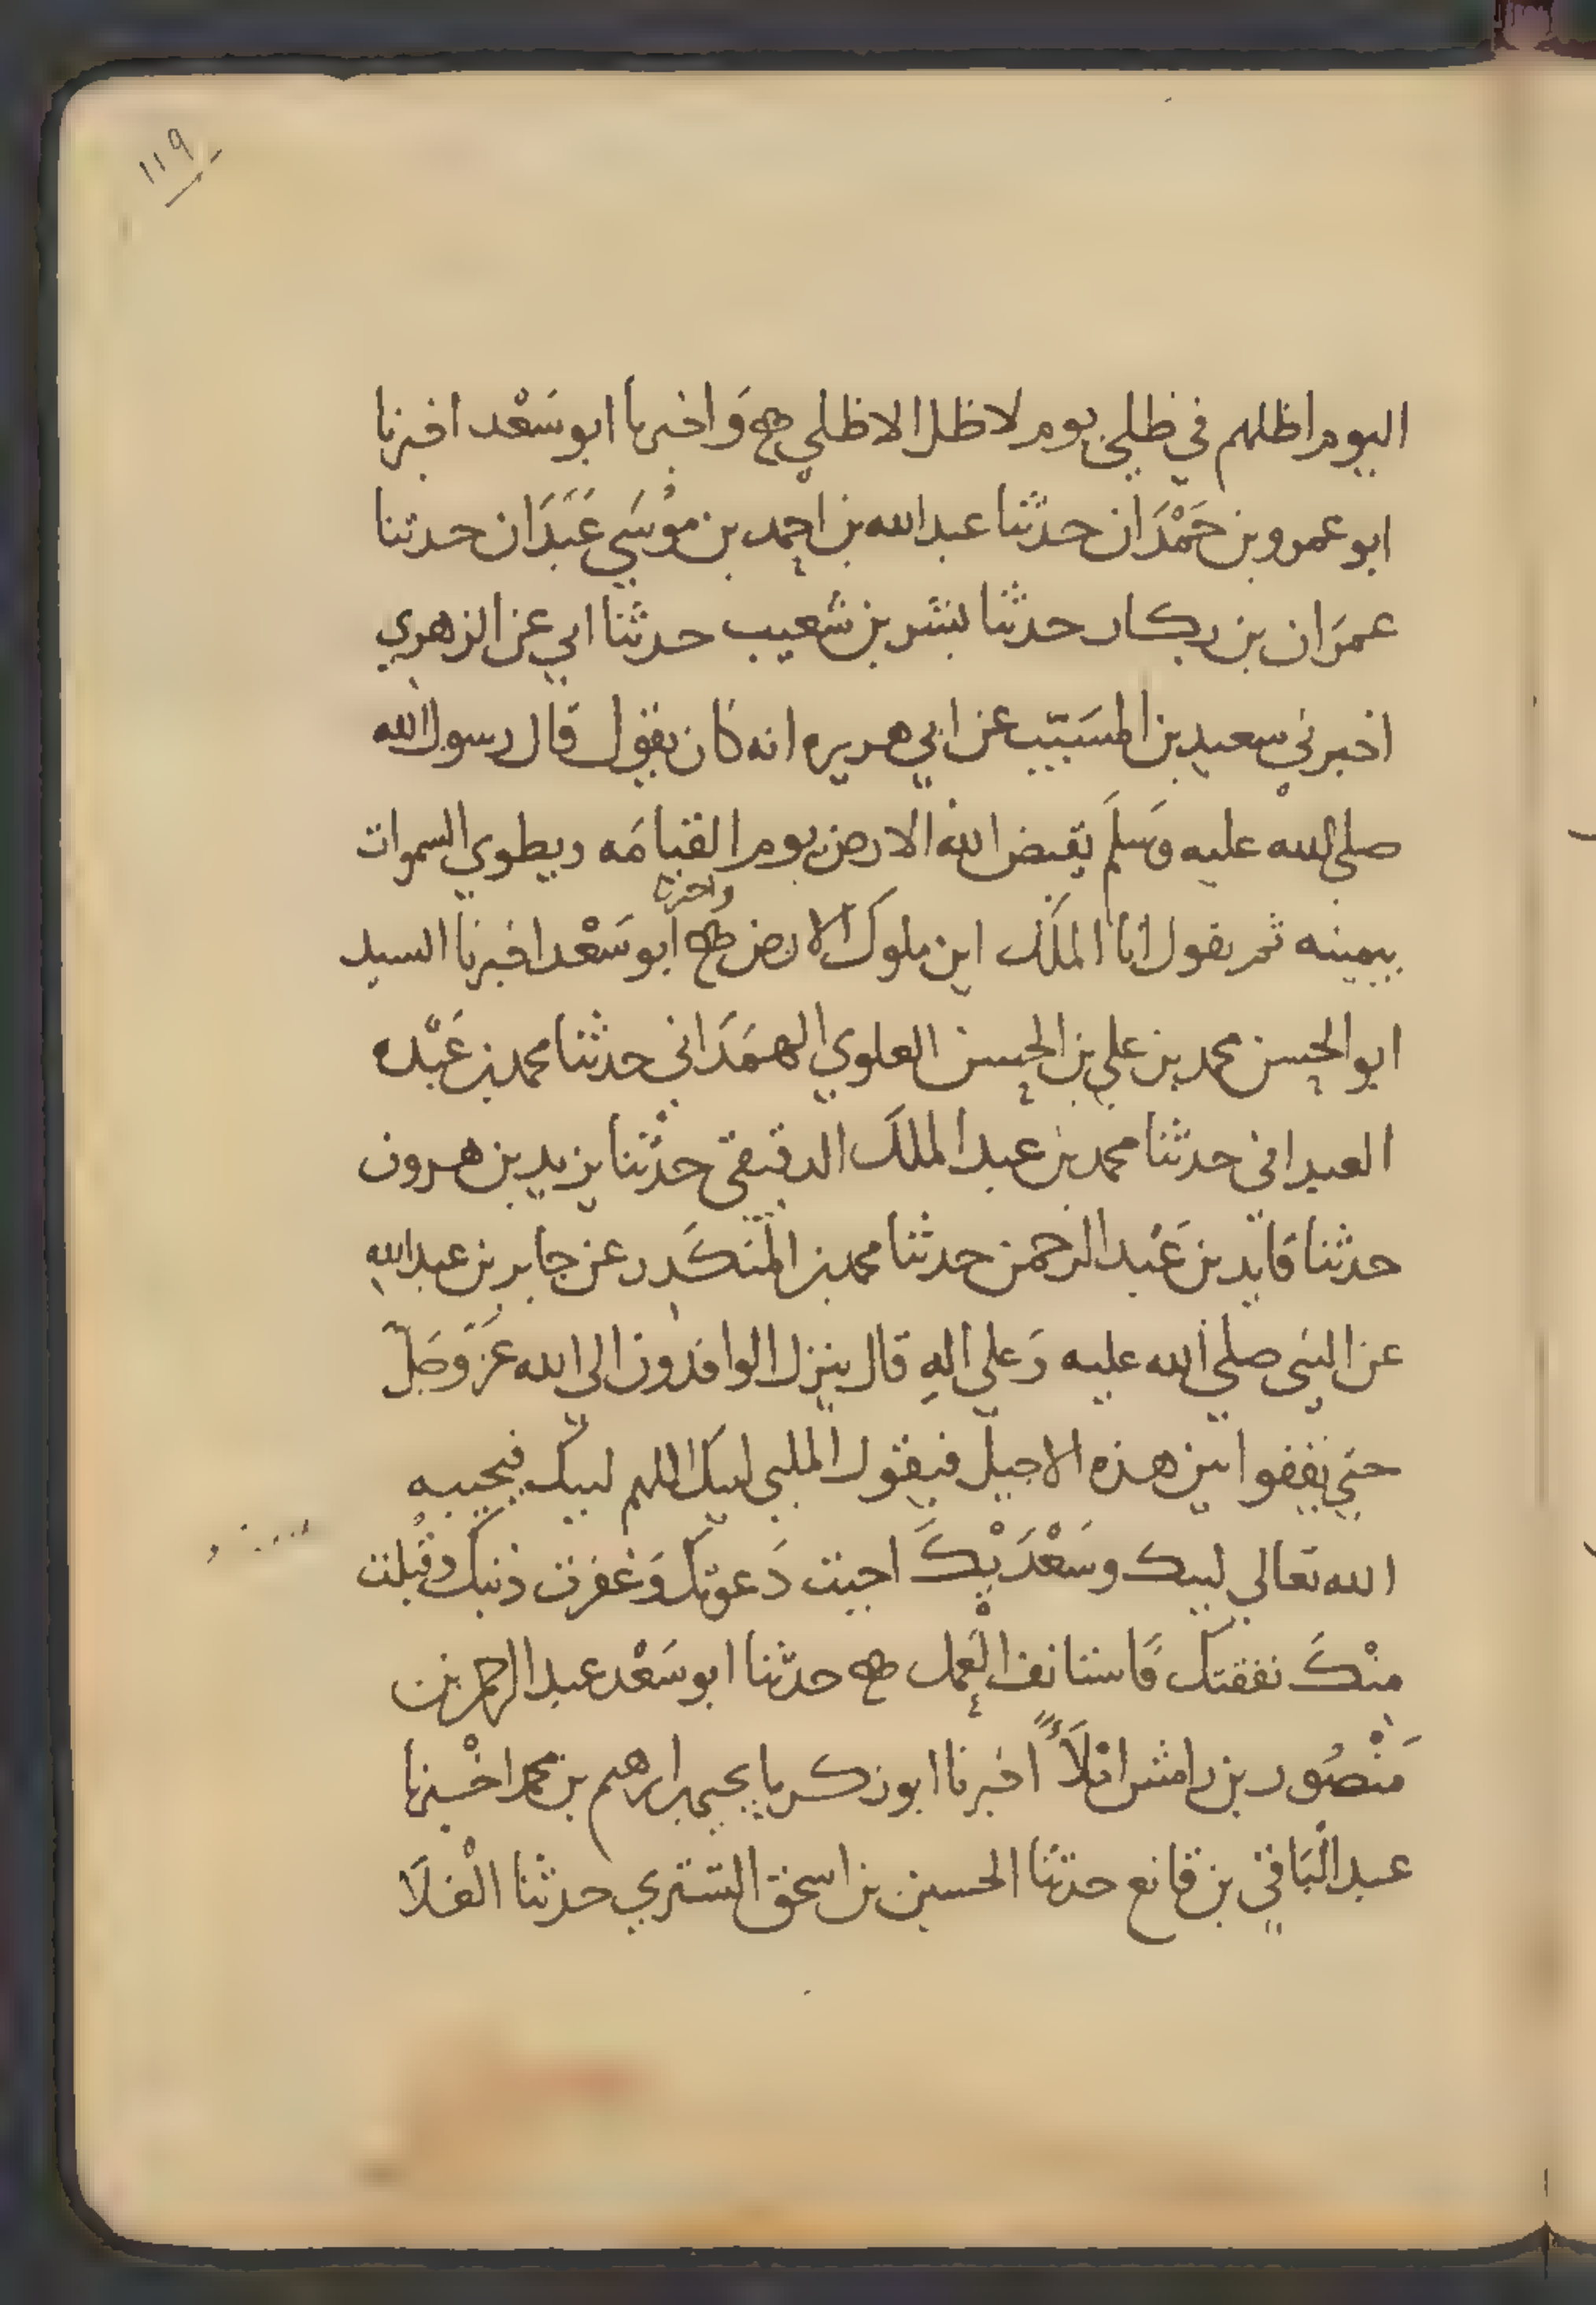 ١١٩
اليوم اظلهم في ظلي يوم لا ظل الا ظلي وَاخبرنا ابو سَعْد اخبرنا
ابو عمرو بن حَمْدَان حدثنا عبد الله بن احمد بن موُسَي عَبَدَان حدثنا
عمرَان بن بكار حدثنا بشر بن شعيب حدثنا ابي عن الزهري
اخبرني سعيد بن المسَيّب عن ابي هريره انه كان يقول قال رسول الله
صلى الله عليه وَسَلم يقبض الله الارض يوم القيامَه ويطوي السموات
بيمينه ثم يقول انا الملك اين ملوك الارض واخبرنا ابو سَعْد اخبرنا السيد
ابو الحسن محمد بن علي بن الحسن العلوي الهمَدَاني حدثنا محمد بن عَبْده
حدثنا محمد بن عبد الملك الدقيقي حدثنا يزيد بن هرون
حدثنا فايد بن عَبْد الرحمن حدثنا محمد بن المنكَدر عن جابر بن عبد الله
عن النبي صلي الله عليه وَعلي الهِ قال ينزل الوافدون الي الله عَز وَجَلّ
حتي يقفوا بين هذه الاجبل فيقول الملبي لبيك اللهم لبيك فيجيبه
الله تعالي لبيك وسَعْدَيْكَ اجبت دَعوتك وَغفرت ذنبك وقبلت
مِنْكَ نفقتك فَاستانف الْعَمل حدثنا ابو سَعْد عبد الرحمن بن
مَنْصُور بن رامش املَاءً اخبرنا ابو زكريا يحيي بن ابرهيم بن محمد اخْبرنا
عبد الْبَاقي بن قانع حدثنا الحسين بن اسحق التستري حدثنا الْعَلَا